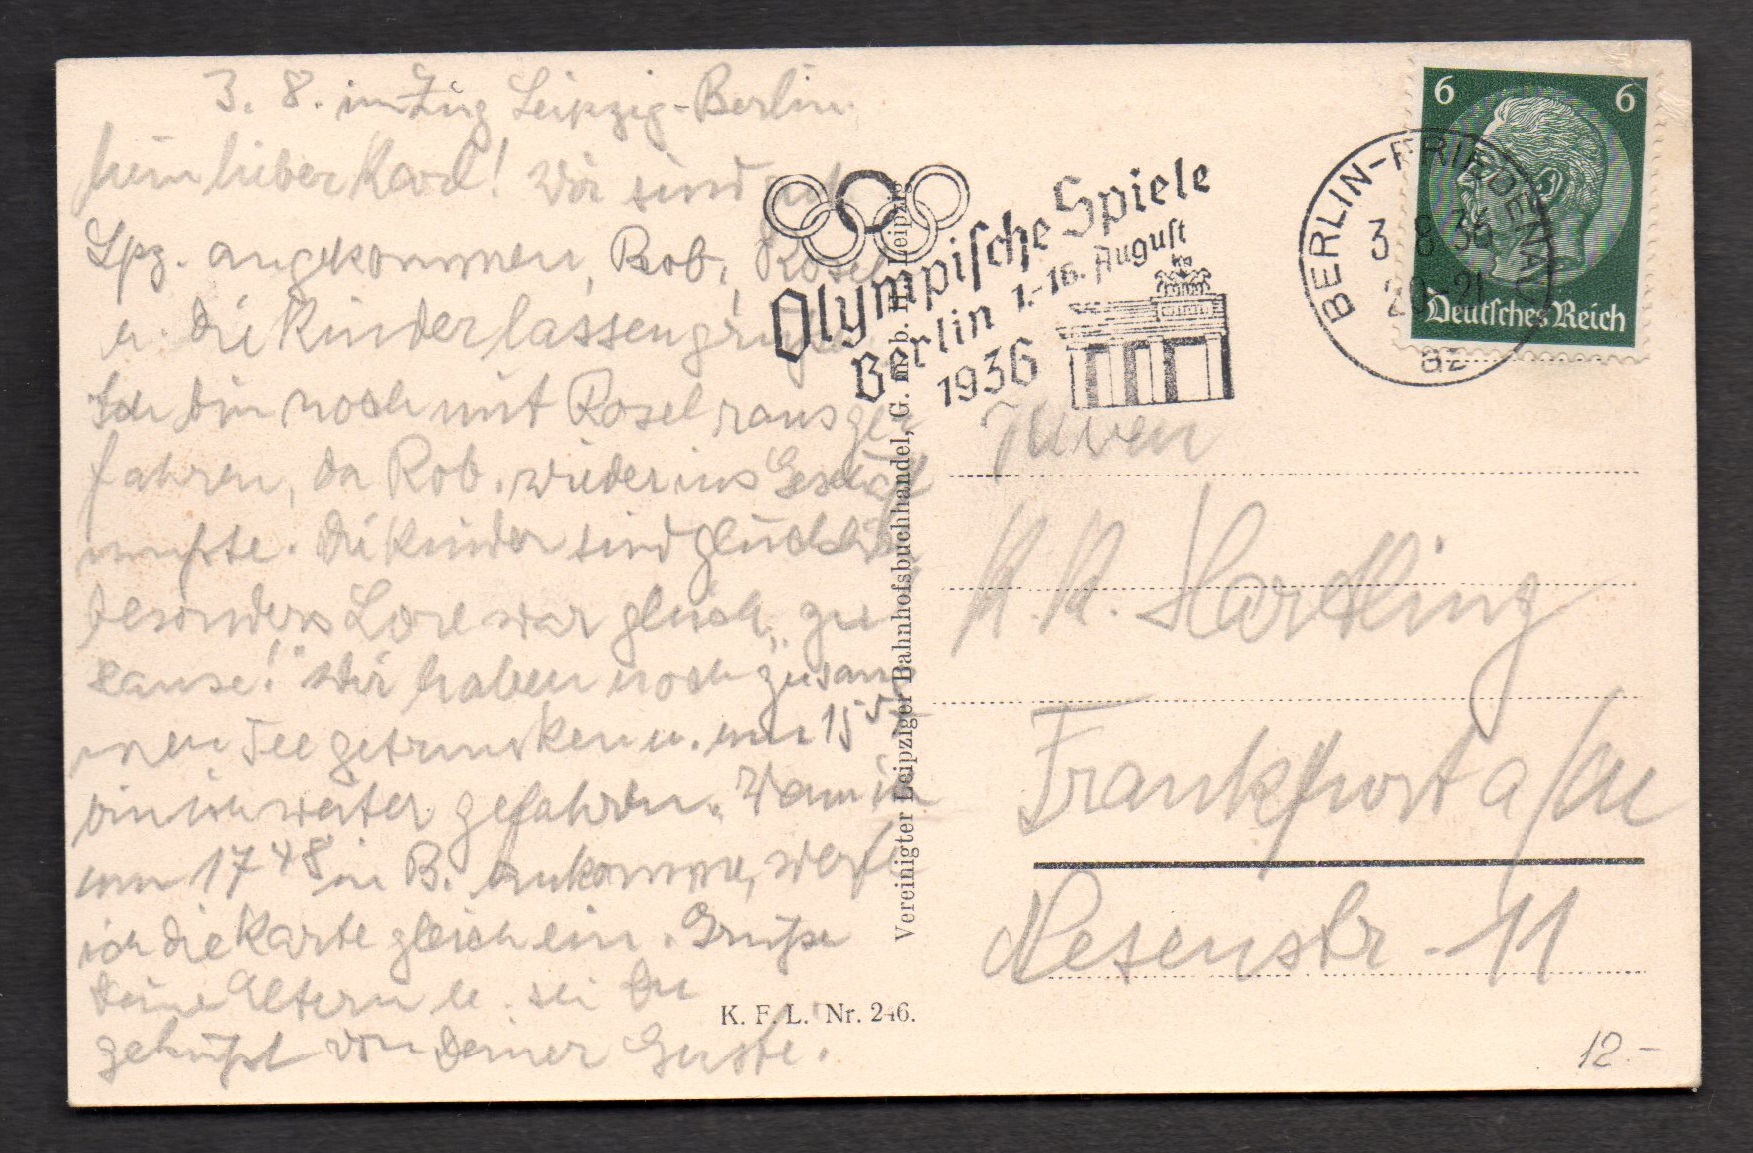 3. 8. im Zug Leipzig-Berlin.
Mein lieber Karl! Wir sind gut
Lpz. angekommen, Rob, Rosel
u. die Kinder lassen grüssen.
Ich bin noch mit Rosel rausge
fahren, da Rob. wieder ins Geschäft
mußte. Die Kinder sind glücklich
besonders Lore war gleich „zu
Hause!" Wir haben noch zusam
men Tee getrunken u. um 15
bin ich weiter gefahren. Wenn ich
um 17⁴⁸ in B. ankomme, werfe
ich die Karte gleich ein. Grüße
Deine Eltern u. sei Du
geküßt von Deiner Guste.
Olympische Spiele
Berlin 1.-16. August
1936
BERLIN-FRIEDENAU
3 8 36
20-21
a2
6 6
Deutsches Reich
Vereinigter Leipziger Bahnhofsbuchhandel, G. m. b. H. Leipzig
K. F. L. Nr. 246.
Frankfurt a/M
Nesenstr. 11
12.-